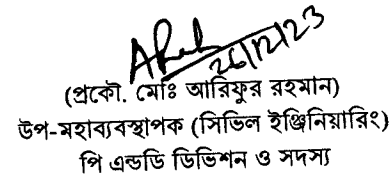 26/12/23
(প্রকৌ. মোঃ আরিফুর রহমান)
উপ-মহাব্যবস্থাপক (সিভিল ইঞ্জিনিয়ারিং)
পি এন্ডডি ডিভিশন ও সদস্য